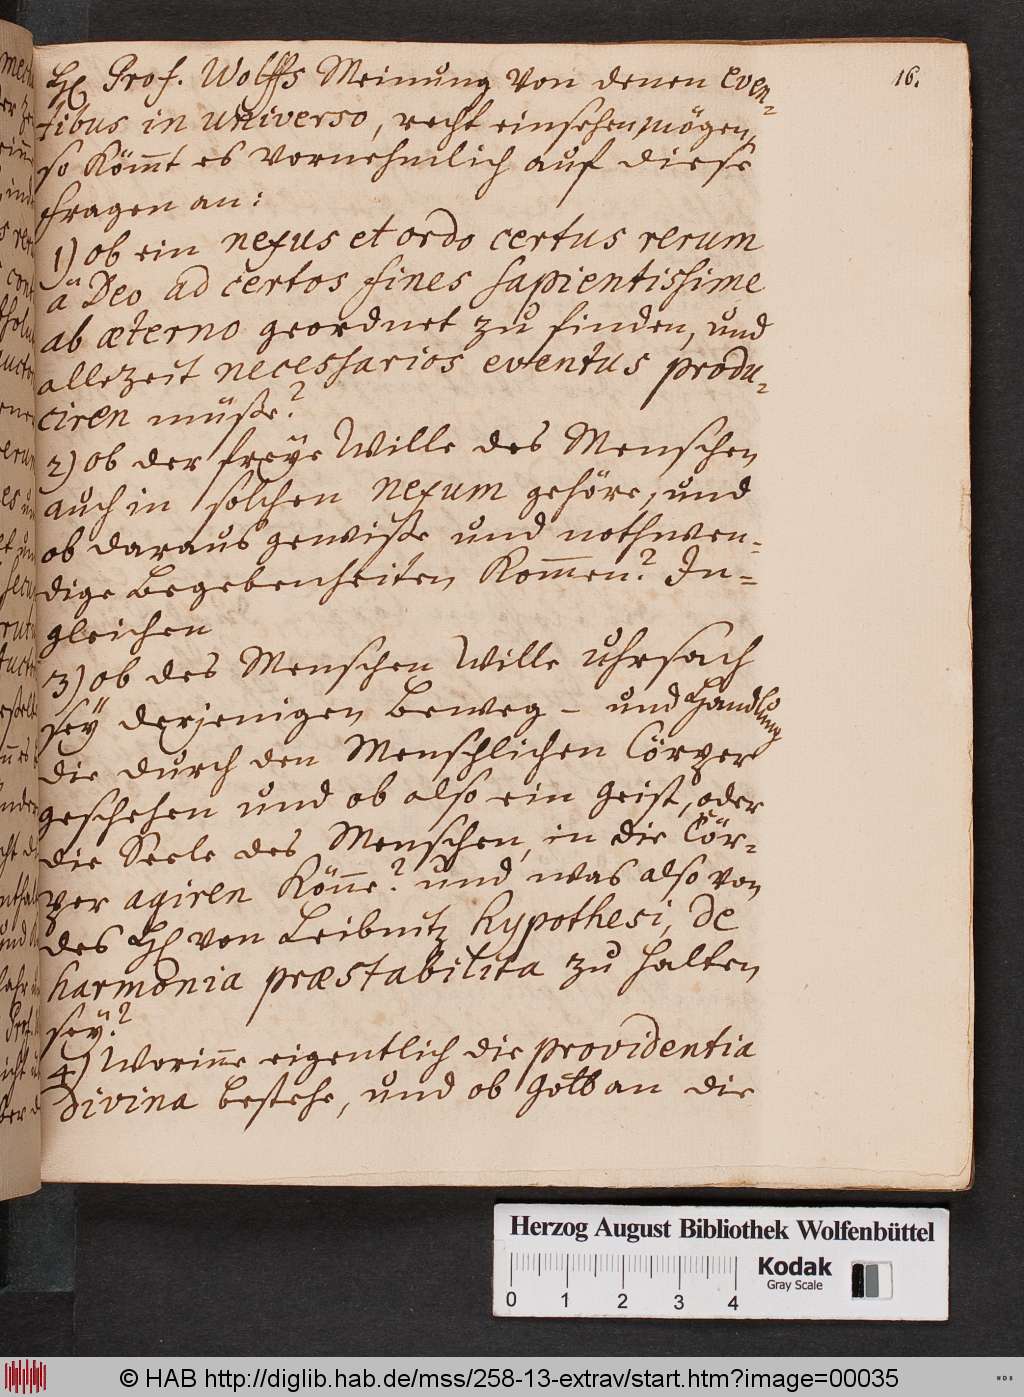 16.
H. Prof. Wolffs Meinung von denen even-
tibus in universo, recht einsehen mögen,
so kömmt es vornehmlich auf diese
Fragen an:
1) ob ein nexus et ordo certus rerum
â Deo ad certos fines sapientissime
ab æterno geordnet zu finden, und
allezeit necessarios eventus produ-
ciren müße?
2) ob der freÿe Wille des Menschen
auch in solchen nexum gehöre, und
ob daraus gewiße und nothwen-
dige Begebenheiten kommen? In-
gleichen
3) ob des Menschen Wille Uhrsach
seÿ derjenigen Beweg- und Handlung
die durch den Menschlichen Cörper
geschehen und ob also ein Geist, oder
die Seele des Menschen, in die Cör-
per agiren könne? und was also von
des H. von Leibnitz hypothesi, de
harmonia præstabilita zu halten
seÿ?
4) Worinne eigentlich die providentia
divina bestehe, und ob Gott an die
Herzog August Bibliothek Wolfenbüttel
Kodak
Gray Scale
0 1 2 3 4
© HAB http://diglib.hab.de/mss/258-13-extrav/start.htm?image=00035